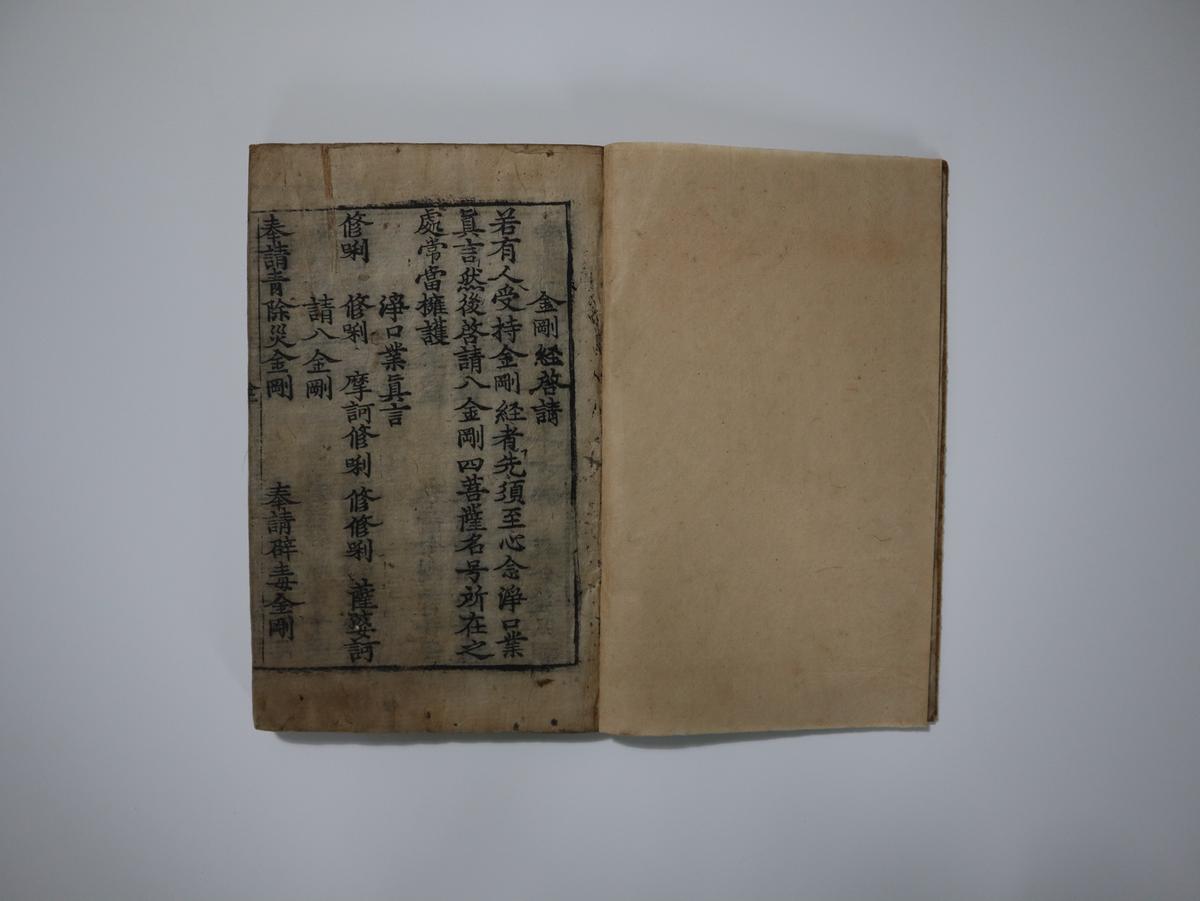 金剛経啓請
若有人受持金剛経者先須至心念淨口業
眞言然後啓請八金剛四菩薩名号所在之
處常當擁護
淨口業眞言
修唎 修唎 摩訶修唎 修修唎 薩婆訶
請八金剛
奉請青除災金剛 奉請辟毒金剛